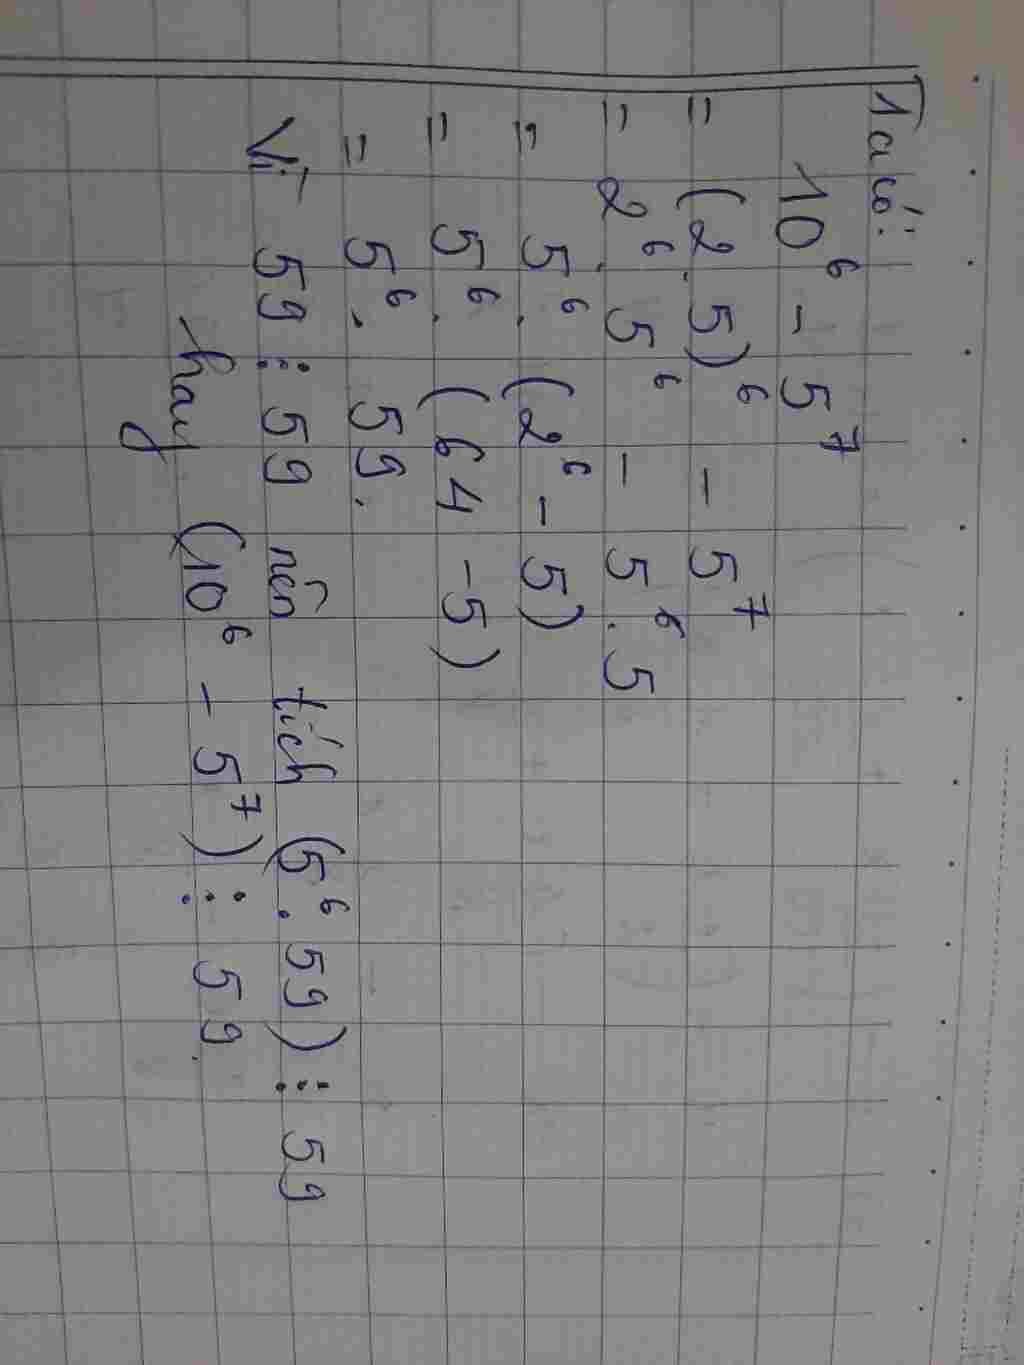 Ta có:
10⁶ - 5⁷
= (2.5)⁶ - 5⁷
= 2⁶. 5⁶ - 5⁶.5
= 5⁶. (2⁶ - 5)
= 5⁶. (64 - 5)
= 5⁶. 59.
Vì 59 ⋮ 59 nên tích (5⁶. 59) ⋮ 59
hay (10⁶ - 5⁷) ⋮ 59.